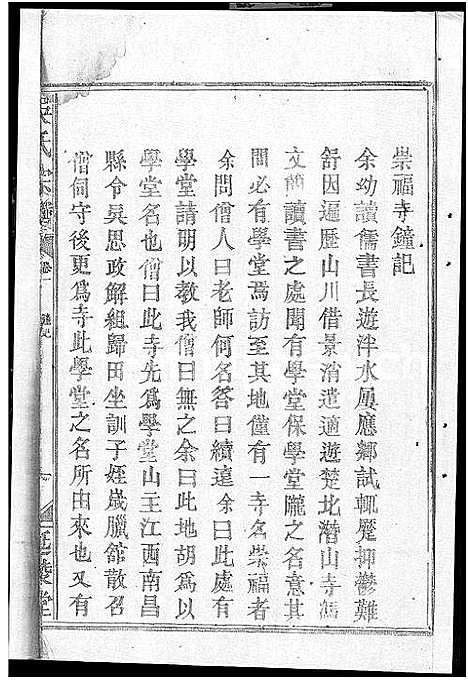 崇福寺鐘記
余幼讀儒書長遊泮水屢應鄉試輒蹙抑鬱難
舒因遍歷山川借景消遣適遊楚北潛山寺
文簡讀書之處聞有學堂保學堂隴之名意其
間必有學堂焉訪至其地僅有一寺名崇福者
余問僧人曰老師何名答曰續遠余曰此處有
學堂請明以教我僧曰無之余曰此地胡為以
學堂名也僧曰此寺先為學堂山主江西南昌
縣令吳思政解組歸田坐訓子姪歲臘館散名
僧伺守後更為寺此學堂之名所由來也又有
氏宗譜
卷一
堂